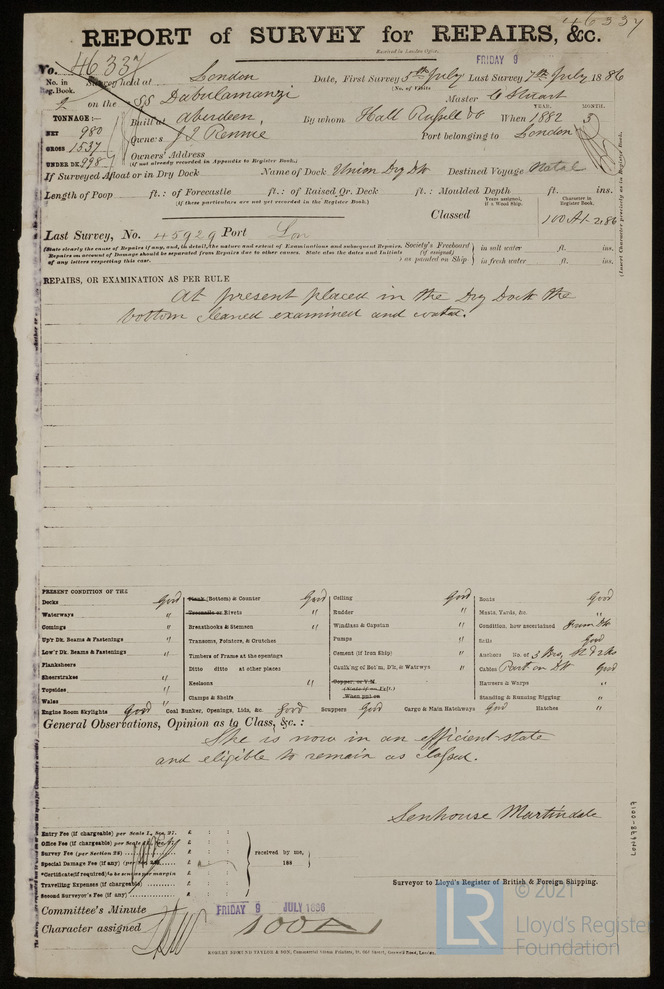 46337
REPORT of SURVEY for REPAIRS, &c.
Received in London Office,
FRIDAY 9
No. 46337
No. in Survey held at London Date, First Survey 5th July Last Survey 7th July 1886
Reg. Book. (No. of Visits
2 on the SS Dabulamanzi Master C Stuart
TONNAGE :- Built at Aberdeen, By whom Hall Russell & Co When 1882 YEAR. MONTH. 3
NET 980
GROSS 1537 Owners J T Rennie Port belonging to London
UNDER DK 998 Owners' Address
(if not already recorded in Appendix to Register Book.)
If Surveyed Afloat or in Dry Dock Name of Dock Union Dry Dk Destined Voyage Natal
Length of Poop ft.: of Forecastle ft.: of Raised Qr. Deck ft.: Moulded Depth ft. ins.
(if these particulars are not yet recorded in the Register Book.)
Years assigned, if a Wood Ship. Character in Register Book.
Classed 100 A1 2.86
Last Survey, No. 45929 Port Lon
(State clearly the cause of Repairs if any, and, in detail, the nature and extent of Examinations and subsequent Repairs.
Repairs on account of Damage should be separated from Repairs due to other causes. State also the dates and Initials
of any letters respecting this case.
Society's Freeboard (if assigned) as painted on Ship in salt water ft. ins.
in fresh water ft. ins.
(Insert Character precisely as in Register Book.
REPAIRS, OR EXAMINATION AS PER RULE
At present placed in the Dry Dock the
bottom cleaned examined and coated.
PRESENT CONDITION OF THE
Decks Good
Waterways "
Comings "
Up'r Dk. Beams & Fastenings "
Low'r Dk. Beams & Fastenings "
Planksheers
Sheerstrakes "
Topsides "
Wales "
Plank (Bottom) & Counter Good
Treenails or Rivets "
Breasthooks & Stemson "
Transoms, Pointers, & Crutches
Timbers of Frame at the openings
Ditto ditto at other places
Keelsons "
Clamps & Shelfs
Ceiling Good
Rudder "
Windlass & Capstan "
Pumps "
Cement (if Iron Ship) "
Caulk'g of Bot'm, Dk, & Watrwys "
Copper, or Y.M.
(State if on Felt.)
When put on
Boats Good
Masts, Yards, &c. "
Condition, how ascertained From Dk
Sails Good
Anchors No. of 3 Br
Cables Part on Dk Good
Hawsers & Warps "
Standing & Running Rigging "
Engine Room Skylights Good Coal Bunker, Openings, Lids, &c. Good Scuppers Good Cargo & Main Hatchways Good Hatches "
General Observations, Opinion as to Class, &c. :
She is now in an efficient state
and eligible to remain as classed.
Senhouse Martindale
Entry Fee (if chargeable) per Scale I., Sec. 27. £ : :
Office Fee (if chargeable) per Scale £ : :
Survey Fee (per Section 28) £ : :
Special Damage Fee (if any) £ : :
*Certificate (if required) to be sent as per margin
Travelling Expenses (if chargeable) £ : :
Second Surveyor's Fee (if any) £ : :
received by me,
188
Surveyor to Lloyd's Register of British & Foreign Shipping.
Committee's Minute FRIDAY 9 JULY 1886
Character assigned 100A1
ROBERT EDMUND TAYLOR & SON, Commercial Steam Printers, 19, Old Street, Goswell Road, London.
LON498-0017
© 2021
LR
Lloyd's Register
Foundation